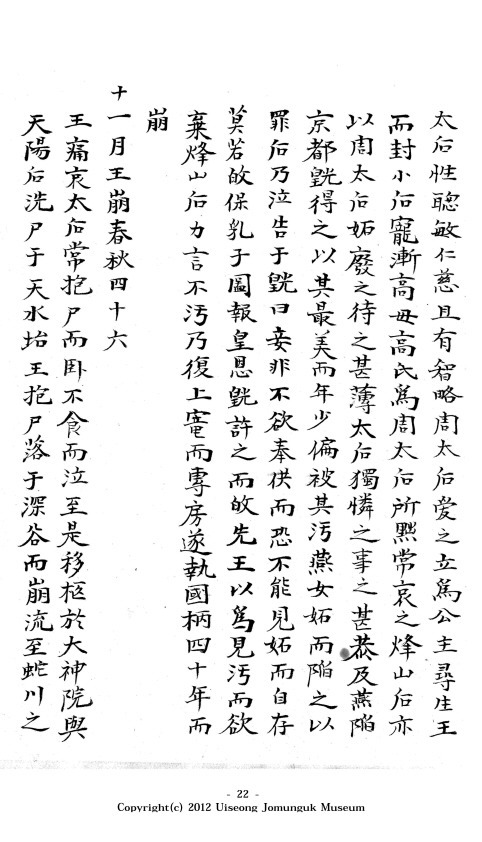 太后性聰敏仁慈且有智略周太后愛之立爲公主尋生王
而封小后寵漸高毋高氏爲周太后所黜常哀之烽山后亦
以周太后妬廢之待之甚薄太后獨憐之事之甚恭及燕陥
京都毀得之以其最美而年少偏被其汚燕女妬而陥之以
罪后乃泣告于毀曰妾非不欲奉供而恐不能見妬而自存
莫若放保乳子圖報皇恩毀許之而放先王以爲見汚而欲
棄烽山后力言不汚乃復上寵而專房遂執國柄四十年而
崩
十一月王崩春秋四十六
王痛哀太后常抱尸而卧不食而泣至是移柩於大神院與
天陽后洗尸于天水坮王抱尸落于深谷而崩流至蛇川之
- 22 -
Copyright(c) 2012 Uiseong Jomunguk Museum